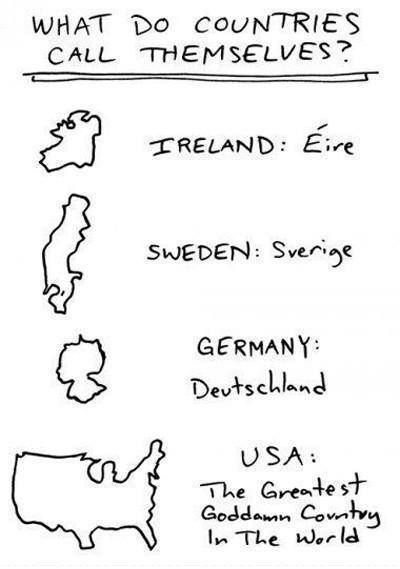 WHAT DO COUNTRIES
CALL THEMSELVES?
IRELAND: Éire
SWEDEN: Sverige
GERMANY:
Deutschland
USA:
The Greatest
Goddamn Country
In The World